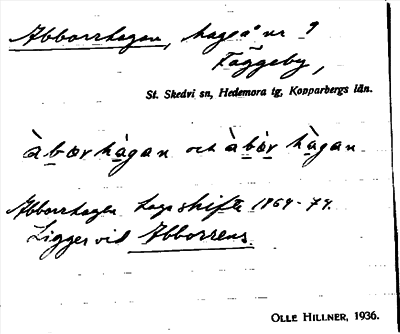 Abborrhagen, hage å nr 9
Fäggeby,
St. Skedvi sn, Hedemora tg, Kopparbergs län.
àbœrhàgan och àbòr hàgan.
Abborrhagen Laga skifte 1864-74.
Ligger vid Abborrens.
OLLE HILLNER, 1936.